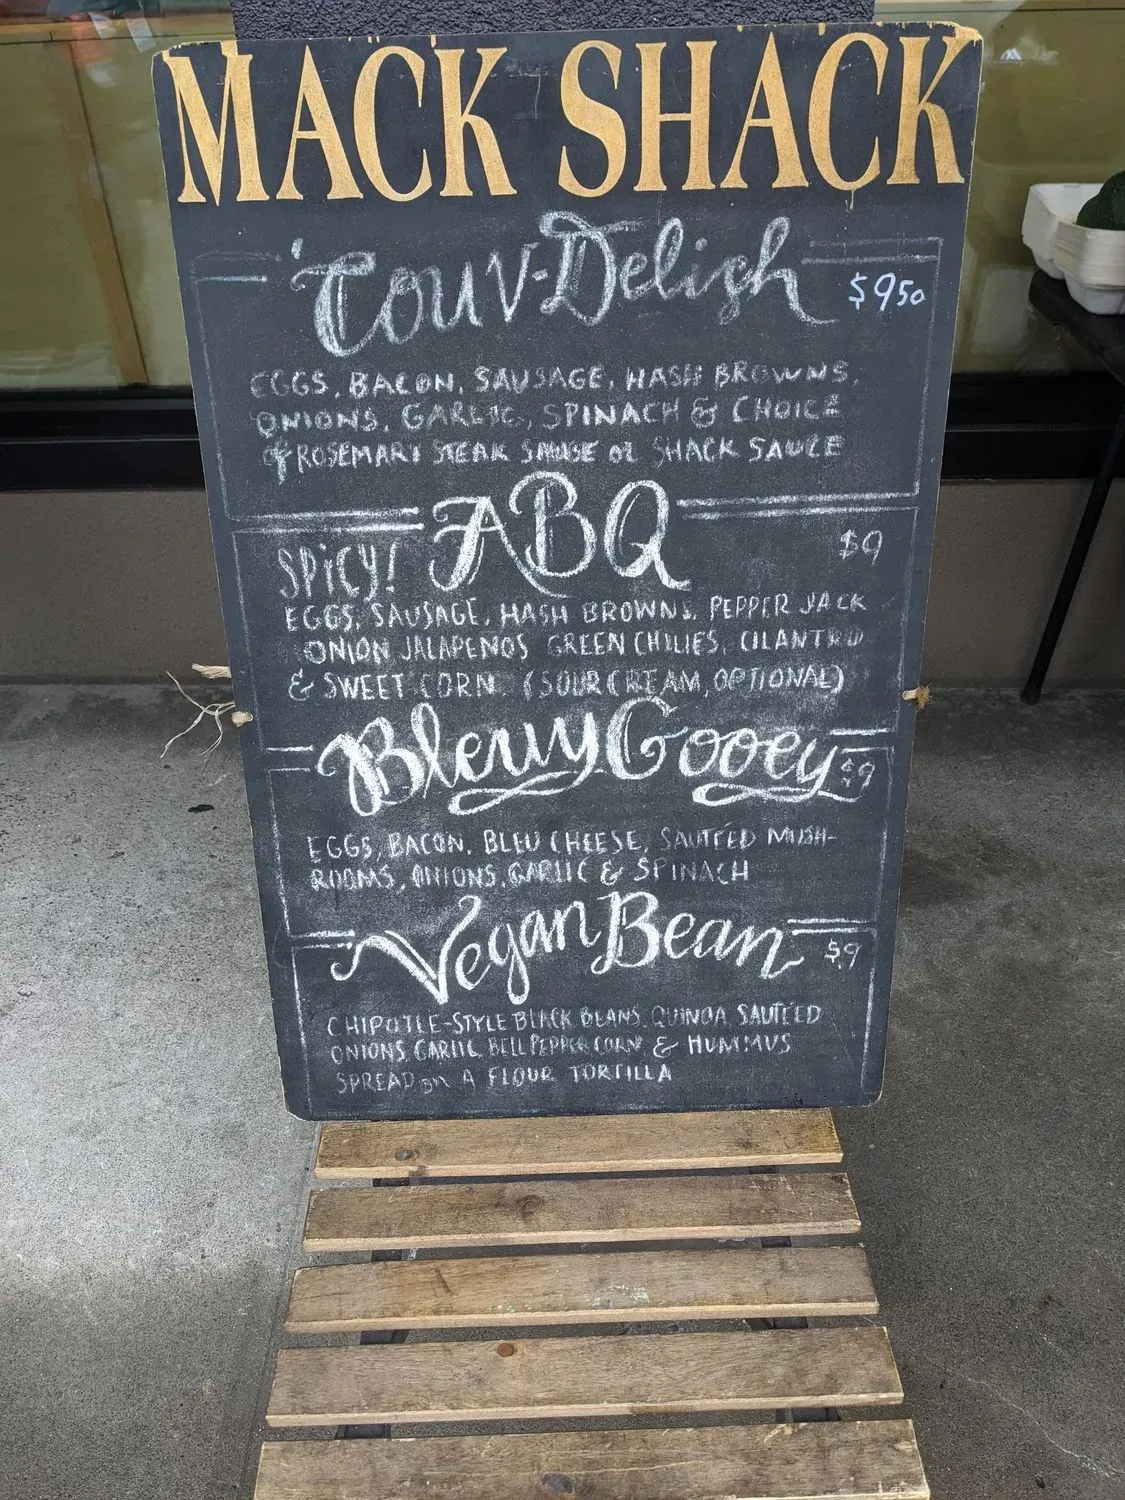 MACK SHACK
'Couv-Delish
$9.50
EGGS, BACON, SAUSAGE, HASH BROWNS,
ONIONS, GARLIC, SPINACH & CHOICE
of ROSEMARY STEAK SAUSE or SHACK SAUCE
ABQ
SPiCY!
$9
EGGS, SAUSAGE, HASH BROWNS, PEPPER JACK
ONION JALAPENOS GREEN CHILIES, CILANTRO
& SWEET CORN (SOUR CREAM, OPTIONAL)
Bleuy Gooey
$9
EGGS, BACON, BLEU CHEESE, SAUTÉED MUSH-
ROOMS, ONIONS, GARLIC & SPINACH
Vegan Bean
$9
CHIPOTLE-STYLE BLACK BEANS, QUINOA, SAUTÉED
ONIONS, GARLIC, BELL PEPPER, CORN & HUMMUS
SPREAD on A FLOUR TORTILLA